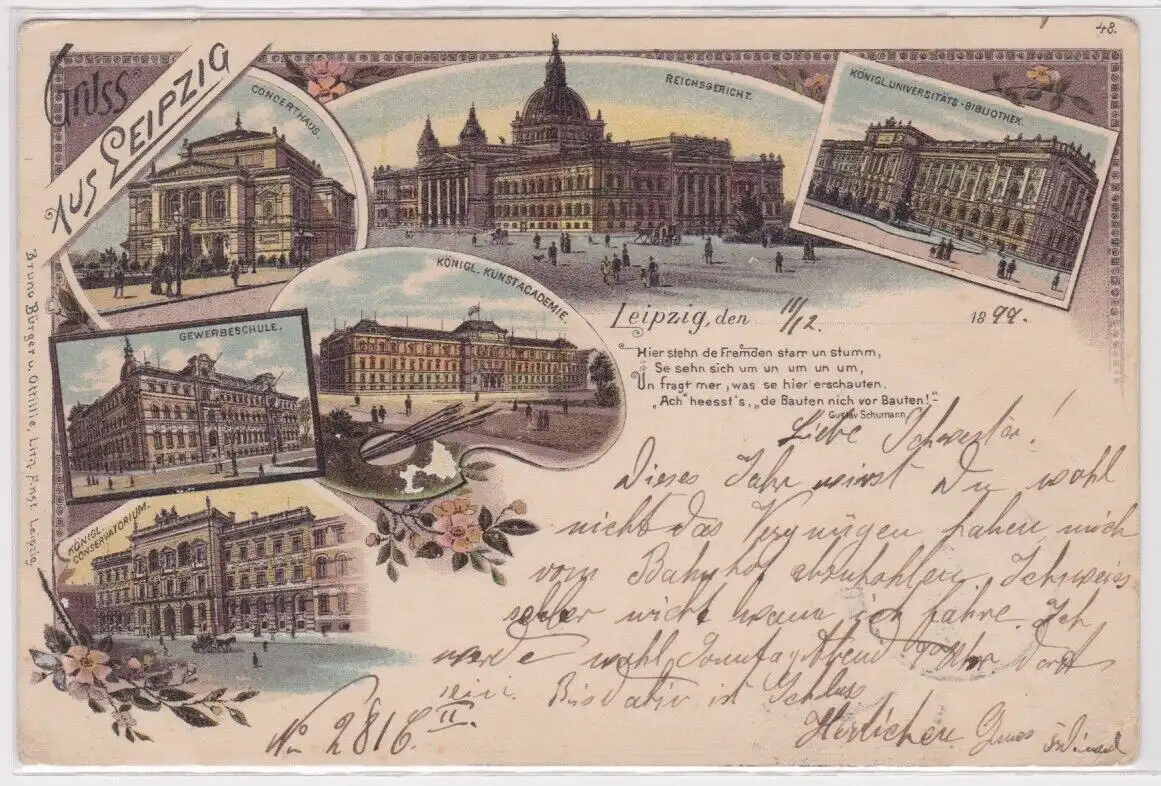 48.
Gruss
aus Leipzig
CONCERTHAUS.
REICHSGERICHT.
KÖNIGL. UNIVERSITÄTS-BIBLIOTHEK.
KÖNIGL. KUNSTACADEMIE.
GEWERBESCHULE.
KÖNIGL.
CONSERVATORIUM.
Bruno Bürger u. Ottillie, Lith. Anst. Leipzig.
Leipzig, den 11/12. 1899.
Hier stehn de Fremden starr un stumm,
Se sehn sich um un um un um,
Un fragt mer, was se hier erschauten,
„Ach" heesst's, „de Bauten nich vor Bauten!"
Gustav Schumann
Liebe Schwester!
Dieses Jahr wirst Du wohl
nicht das Vergnügen haben mich
vom Bahnhof abzuholen,
selber nicht wann ich fahre. Ich
werde wohl Sonntag Abend Uhr dort
sein. Bis dahin ist Schluss
Herzlichen Gruss
No 2816
II.